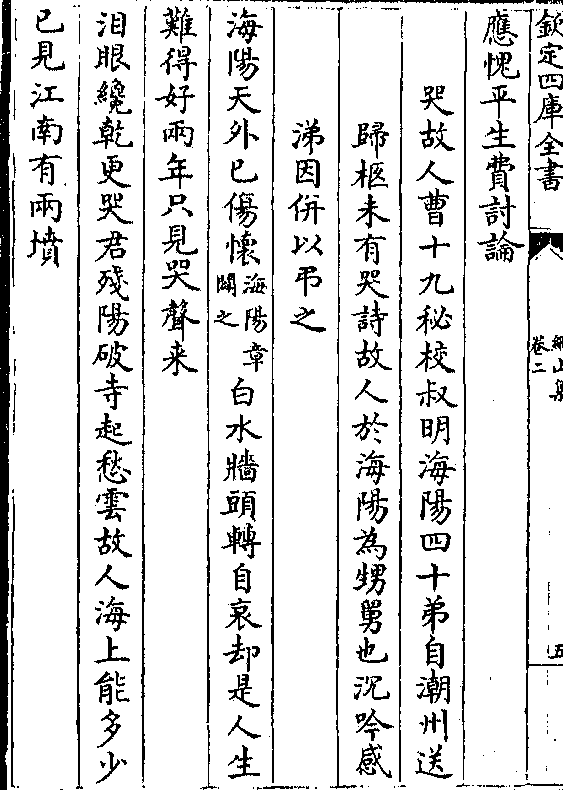 欽定四庫全書
卷二
五
應愧平生費討論
哭故人曹十九秘校叔明海陽四十弟自潮州送
歸柩未有哭詩故人於海陽為甥舅也沉吟感
涕因併以弔之
海陽天外已傷懷海陽章闗之白水牆頭轉自哀却是人生
難得好兩年只見哭聲来
泪眼纔乾更哭君殘陽破寺起愁雲故人海上能多少
已見江南有兩墳